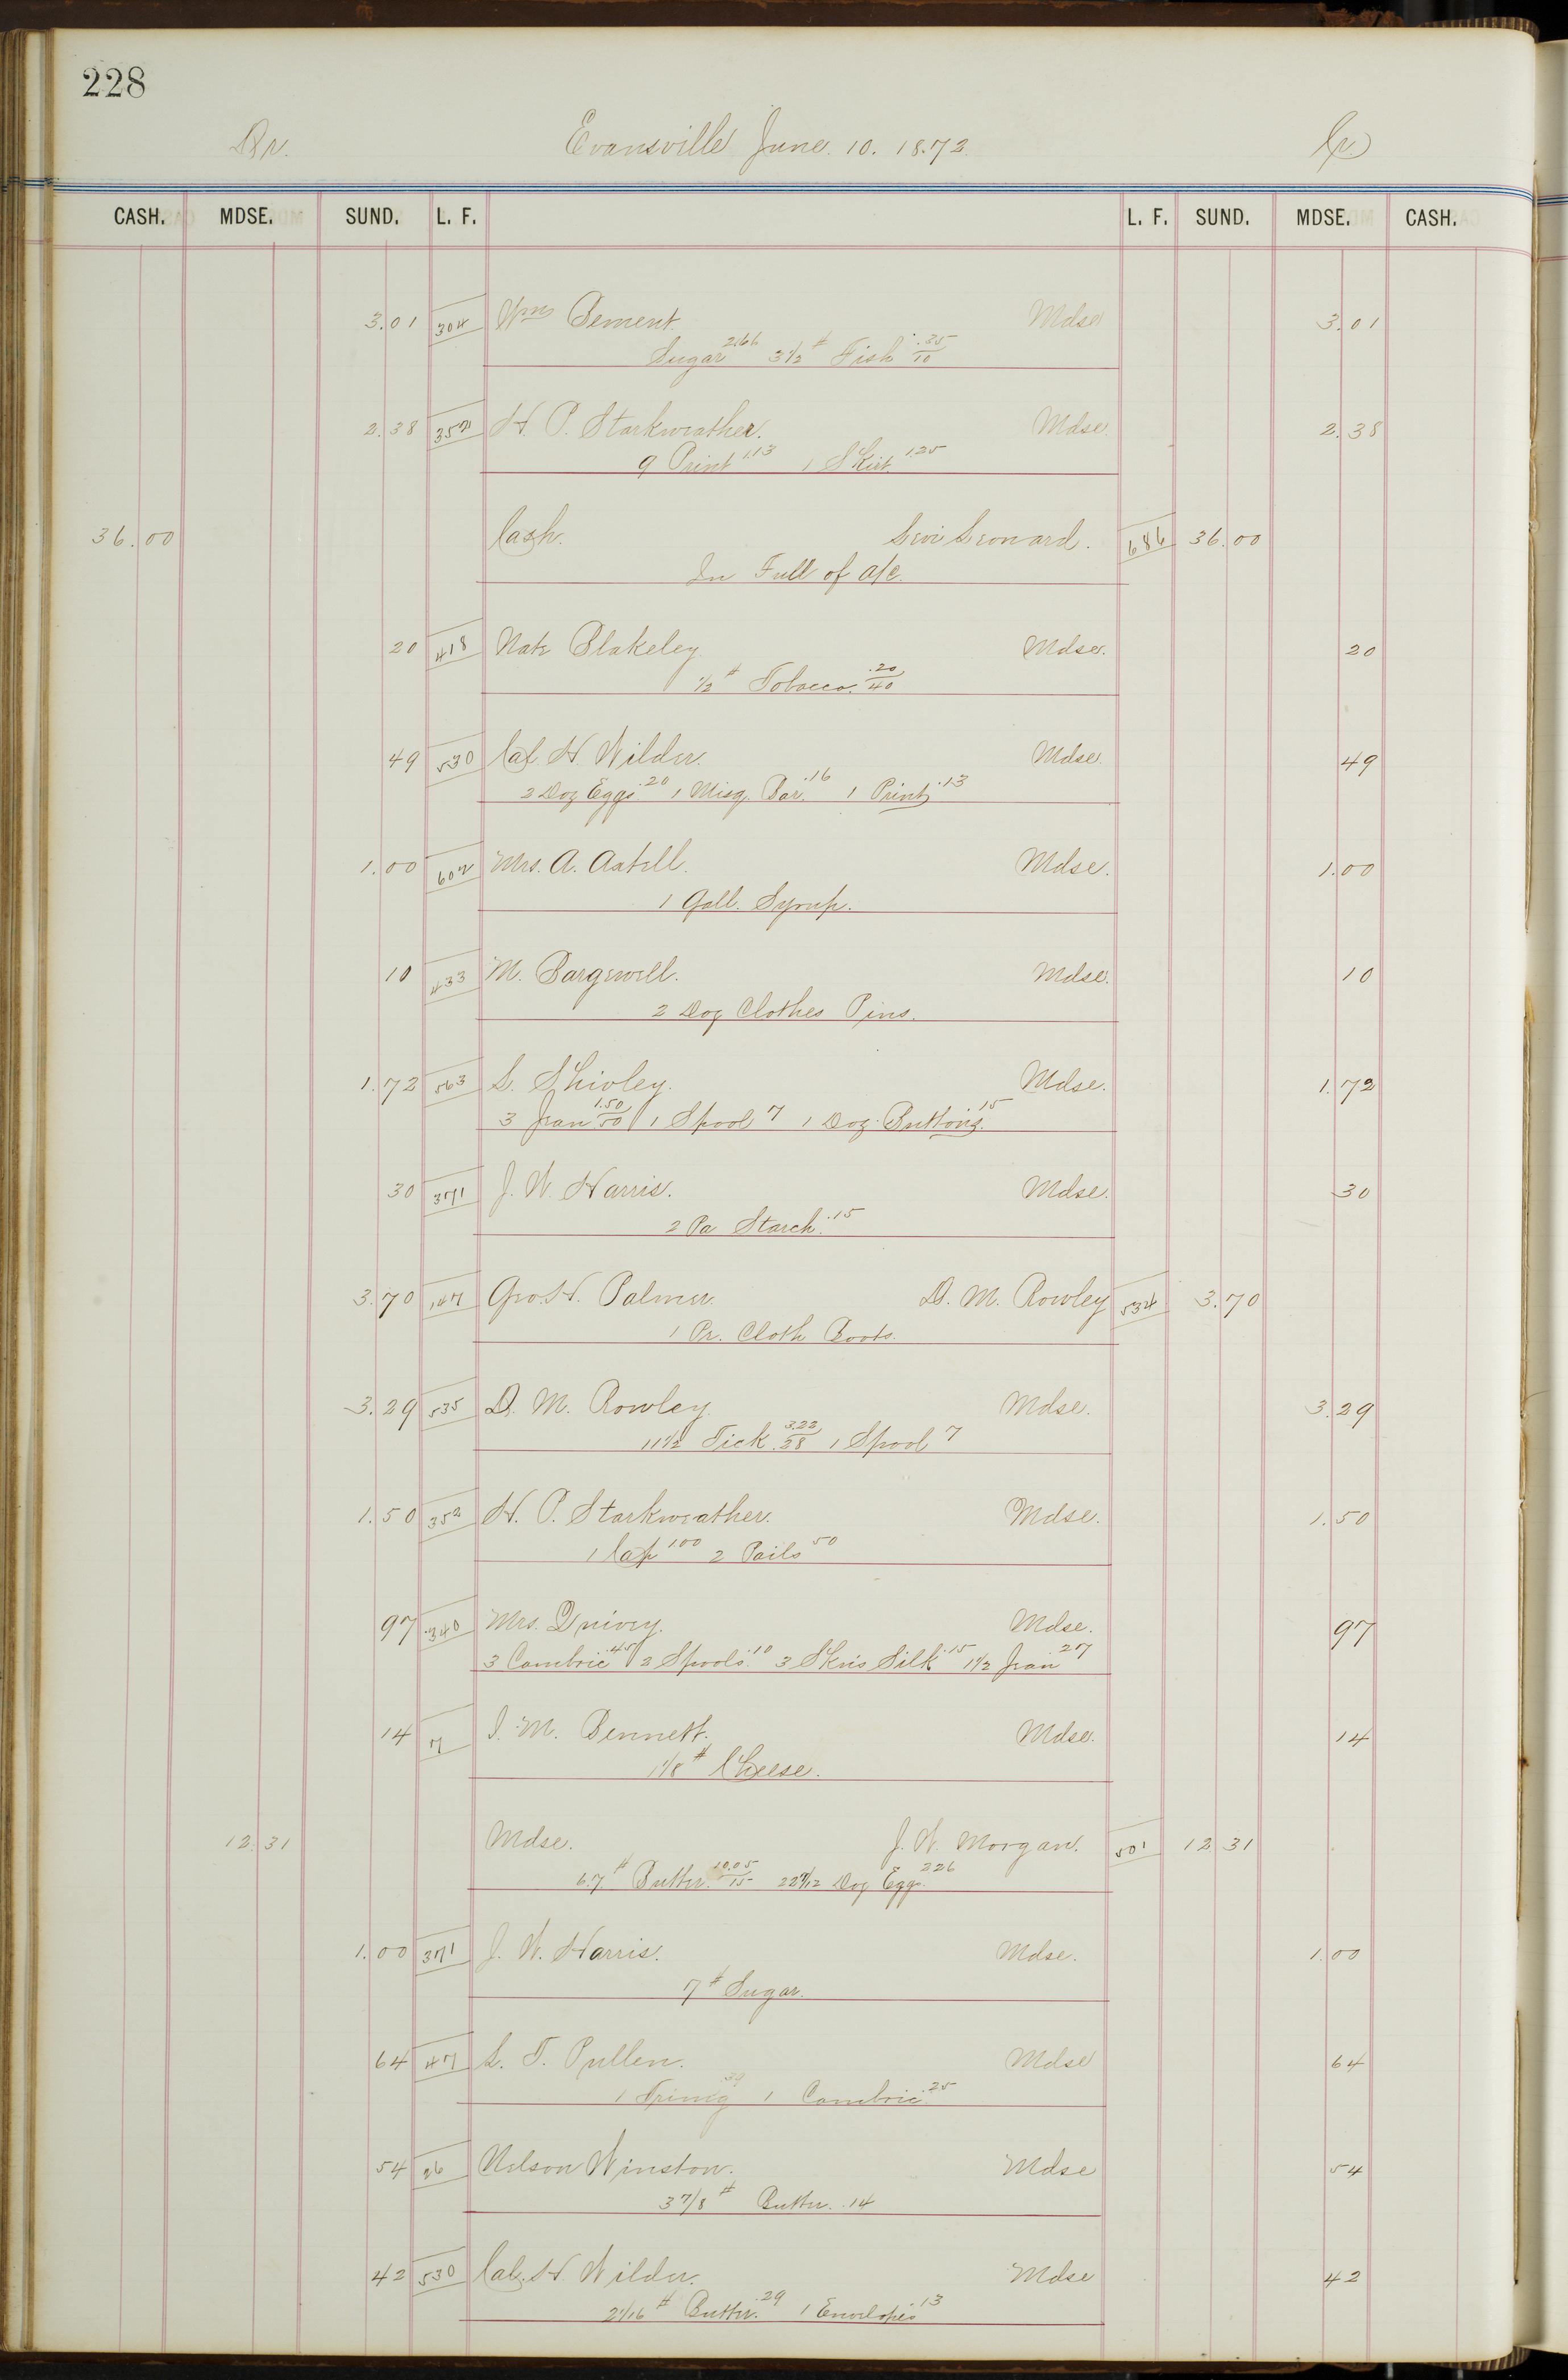 228
Dr. Evansville June. 10. 18.72. Cr.
CASH. MDSE. SUND. L. F. L. F. SUND. MDSE. CASH.
3.01 304 Wm Bement. Mdse 3.01
Sugar 2.66 3 1/2 # Fish .35/10
2.38 352 H. P. Starkweather. Mdse. 2.38
9 Print 1.13 1 Skirt. 1.25
36.00 Cash. Levi Leonard. 686 36.00
In Full of a/c.
20 418 Nate Blakeley Mdse. 20
1/2 # Tobacco. .20/40
49 530 Cal H. Wilder. Mdse. 49
2 Doz Eggs. .20 1 Misq. Bar. .16 1 Print .13
1.00 602 Mrs. A. Axtell. Mdse. 1.00
1 Gall. Syrup.
10 433 M. Bargewell. Mdse. 10
2 Doz Clothes Pins.
1.72 563 L. Shivley. Mdse. 1.72
3 Jean 1.50/50 1 Spool 7 1 Doz. Buttons. .15
30 371 J. W. Harris. Mdse. 30
2 Pa Starch. .15
3.70 147 Geo. H. Palmer. D. M. Rowley 534 3.70
1 Pr. Cloth Boots.
3.29 535 D. M. Rowley. Mdse. 3.29
11 1/2 Tick 3.22/.28 1 Spool 7
1.50 352 H. P. Starkweather. Mdse. 1.50
1 Cap 100 2 Pails 50
97 340 Mrs. Quivey. Mdse. 97
3 Cambric .45 2 Spools .10 3 Skns Silk .15 1 1/2 Jean 27
14 7 I. M. Bennett. Mdse. 14
1/8 # Cheese.
12.31 Mdse. J. W. Morgan. 501 12.31
67 # Butter. 10.05/15 22 7/12 Doz Eggs. 226
1.00 371 J. W. Harris. Mdse. 1.00
7 # Sugar.
64 47 L. T. Pullen. Mdse 64
1 Trimg .39 1 Cambric .25
54 26 Nelson Winston. Mdse 54
3 7/8 # Butter. .14
42 530 Cal. H Wilder. Mdse 42
2 1/16 # Butter. .29 1 Envelopes .13